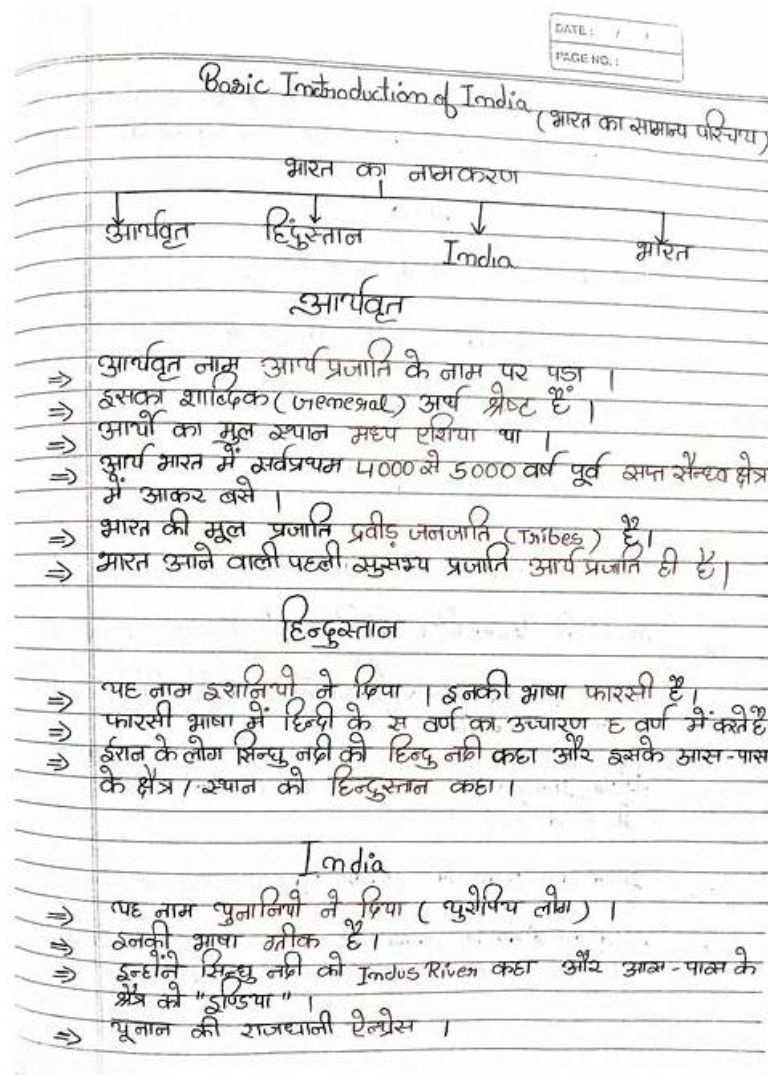 DATE: / /
PAGE NO.:
Basic Introduction of India (भारत का सामान्य परिचय)
भारत का नामकरण
आर्यवृत हिंदुस्तान India भारत
आर्यवृत
⇒ आर्यवृत नाम आर्य प्रजाति के नाम पर पडा ।
⇒ इसका शाब्दिक (General) अर्थ श्रेष्ट हैं ।
⇒ आर्यो का मुल स्थान मध्य एशिया था ।
⇒ आर्य भारत में सर्वप्रथम 4000 से 5000 वर्ष पूर्व सप्त सैन्धव क्षेत्र
में आकर बसे ।
⇒ भारत की मूल प्रजाति द्रवीड़ जनजाति (Tribes) है।
⇒ भारत आने वाली पहली सुसभ्य प्रजाति आर्य प्रजाति ही है।
हिन्दुस्तान
⇒ यह नाम इरानियो ने दिया । इनकी भाषा फारसी है।
⇒ फारसी भाषा में हिन्दी के स वर्ण का उच्चारण ह वर्ण में करते है
⇒ ईरान के लोग सिन्धु नदी को हिन्दु नदी कहा और इसके आस-पास
के क्षैत्र / स्थान को हिन्दुस्तान कहा ।
India
⇒ यह नाम युनानियो ने दिया ( युरोपिय लोग ) ।
⇒ इनकी भाषा ग्रीक है।
⇒ इन्होंने सिन्धु नदी को Indus River कहा और आस-पास के
क्षैत्र को "इण्डिया" ।
⇒ यूनान की राजधानी ऐन्थेस ।